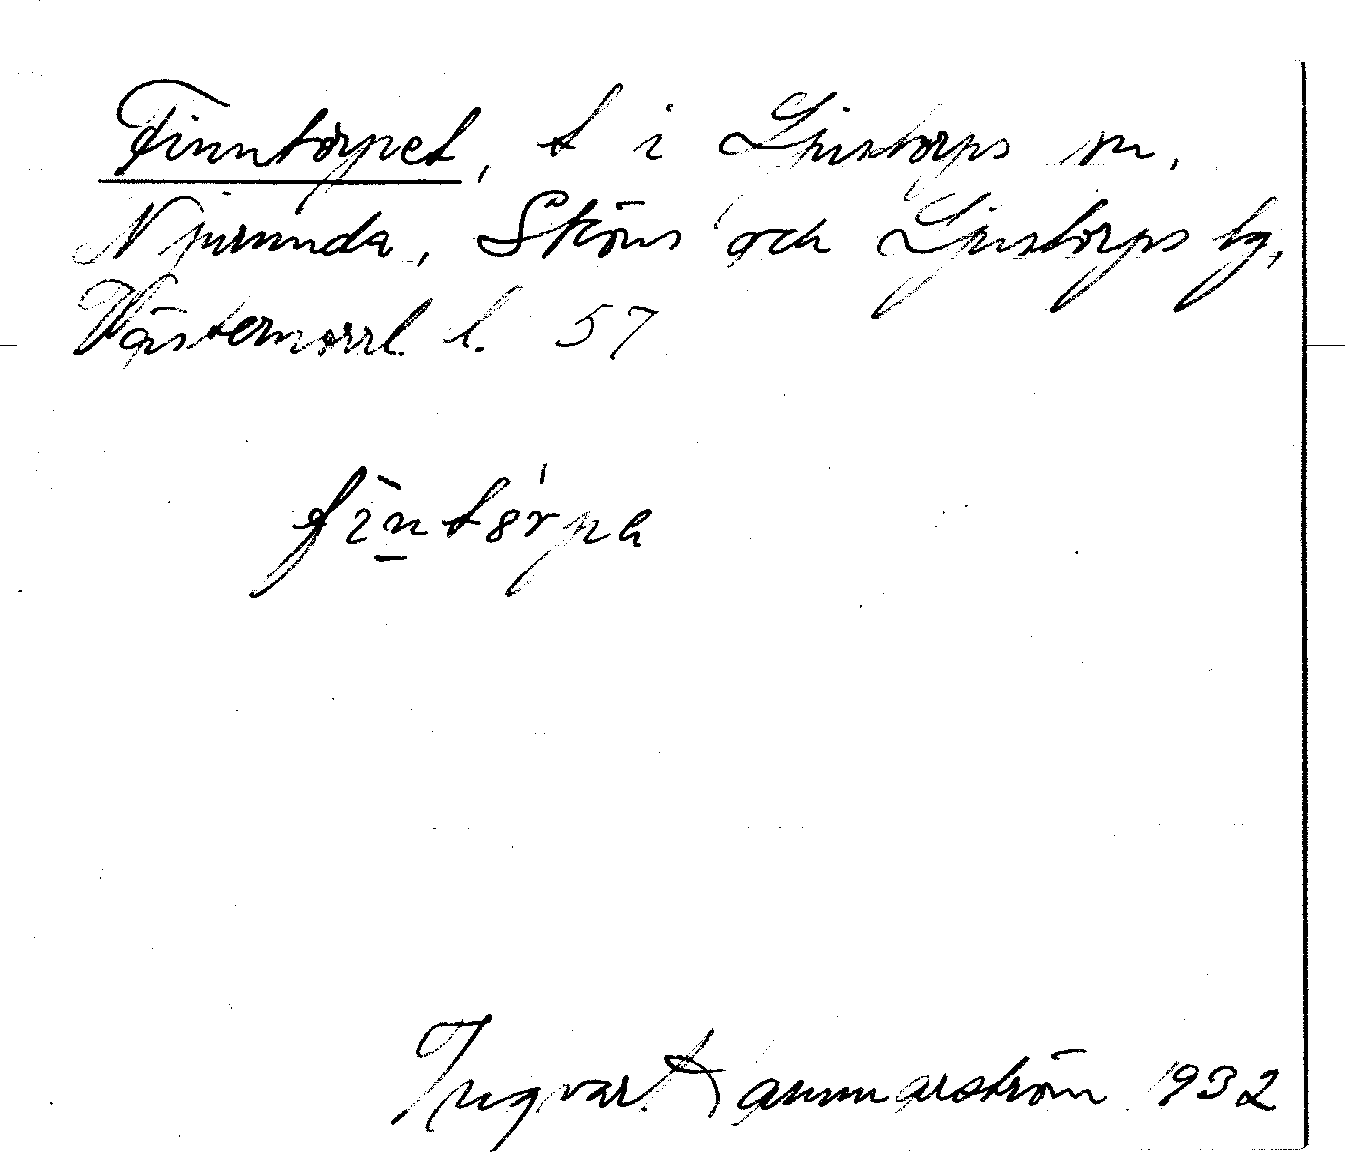 Finntorpet, t i Ljustorps sn,
Njurunda, Sköns och Ljustorps tg,
Västernorrl. l. 57
fintörpa
Ingvar Hammarström 1932